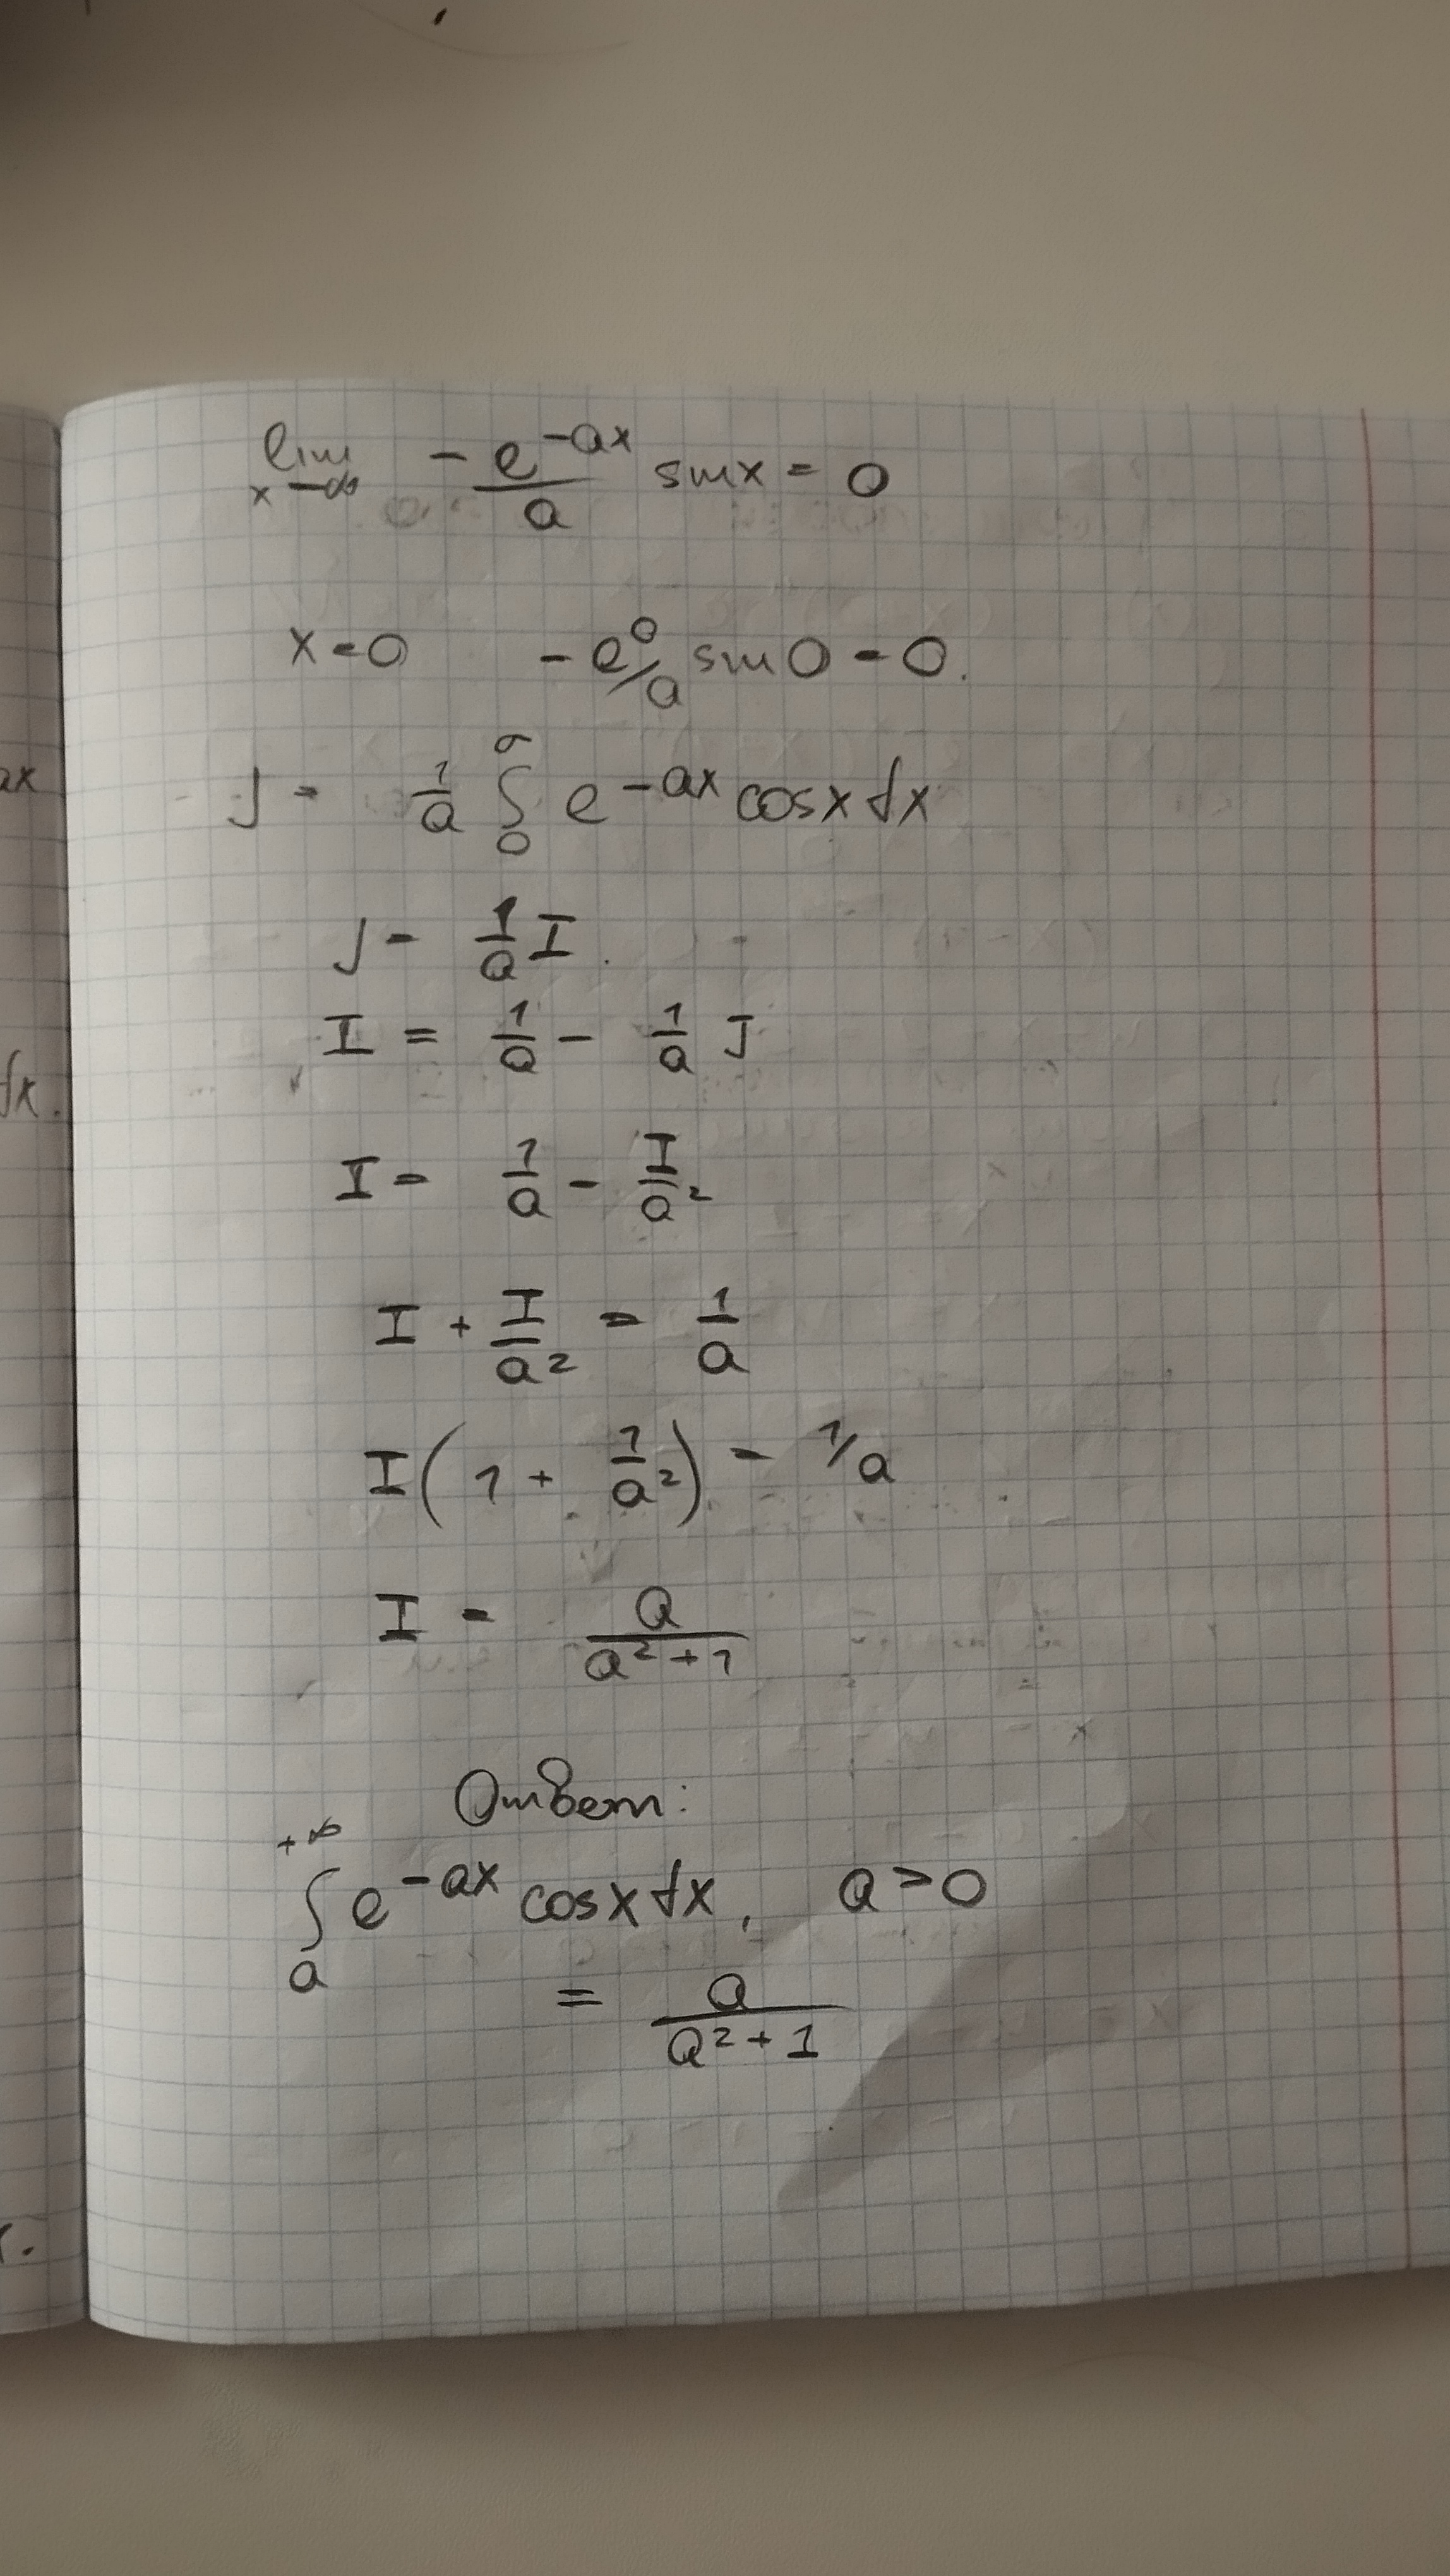 ax
dx.
lim x→∞ -e^(-ax)/a sinx = 0
x=0 -e^0/a sin0 = 0.
J = 1/a ∫_0^σ e^(-ax) cosx dx
J = 1/a I.
I = 1/a - 1/a J
I = 1/a - I/a²
I + I/a² = 1/a
I(1 + 1/a²) = 1/a
I = a/(a²+1)
Ответ:
∫_a^(+∞) e^(-ax) cosx dx, a>0
= a/(a²+1)